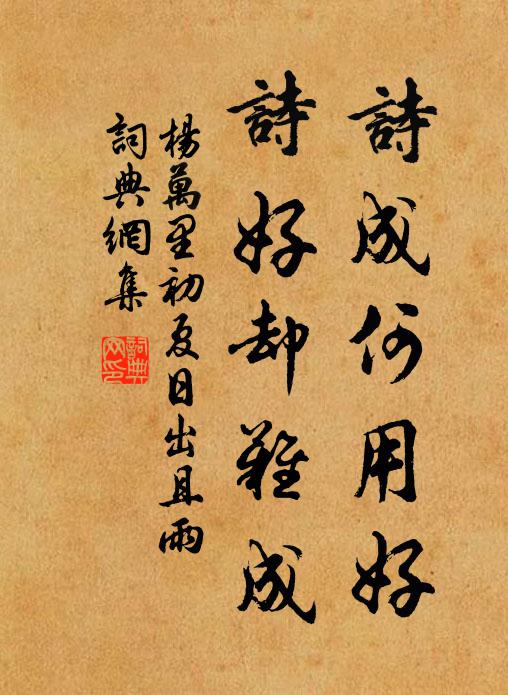 詩成何用好
詩好却難成
楊萬里初夏日出且雨
詞典網集
詞典網印